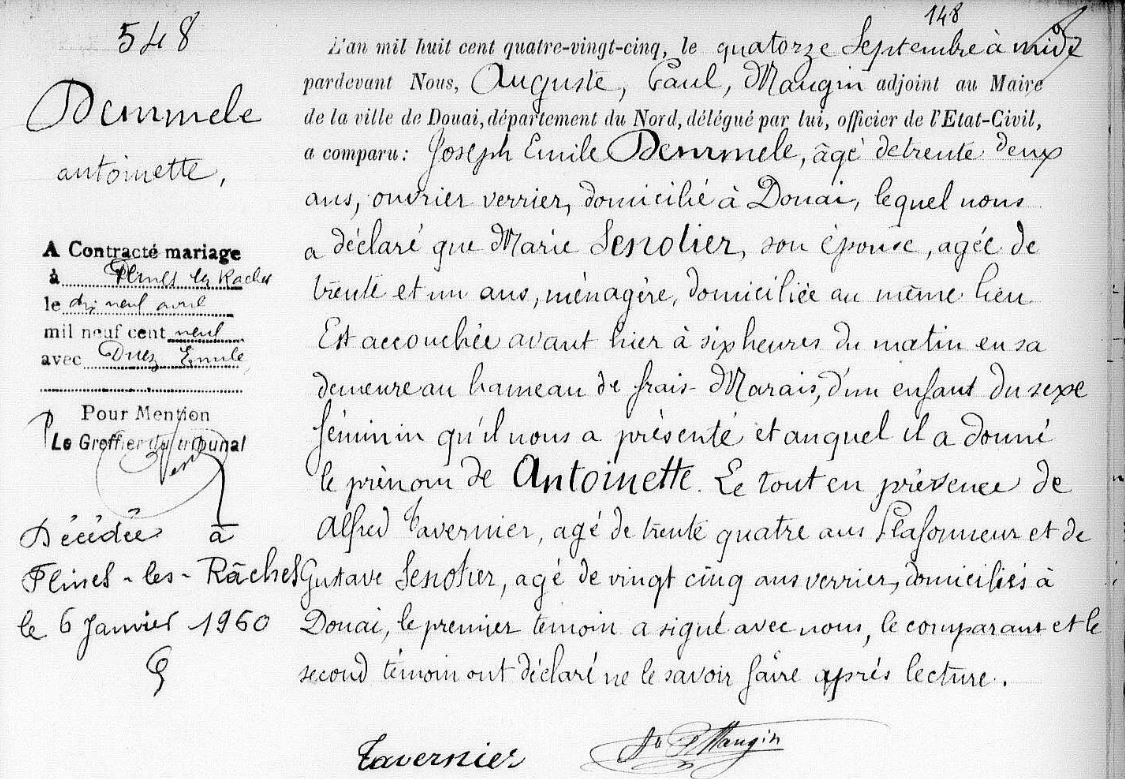 148
548
Demmele
antoinette,
A Contracté mariage
à Flines lez Raches
le dix neuf avril
mil neuf cent neuf
avec Duez Emile
Pour Mention
Le Greffier du tribunal
Décédée à
Flines-les-Râches
le 6 Janvier 1960
L'an mil huit cent quatre-vingt-cinq, le quatorze Septembre à midi
pardevant Nous, Auguste, Paul, Mangin adjoint au Maire
de la ville de Douai, département du Nord, délégué par lui, officier de l'Etat-Civil,
a comparu: Joseph Emile Demmele, âgé de trente deux
ans, ouvrier verrier, domicilié à Douai, lequel nous
a déclaré que Marie Senotier, son épouse, agée de
trente et un ans, ménagère, domiciliée au même lieu
Est accouchée avant hier à six heures du matin en sa
demeure au hameau de frais-Marais, d'un enfant du sexe
féminin qu'il nous a présenté et auquel il a donné
le prénom de Antoinette. Le tout en présence de
Alfred Tavernier, agé de trente quatre ans Plafonneur et de
Gustave Senotier, agé de vingt cinq ans verrier, domiciliés à
Douai, le premier témoin a signé avec nous, le comparant et le
second témoin ont déclaré ne le savoir faire après lecture.
Tavernier
Mangin